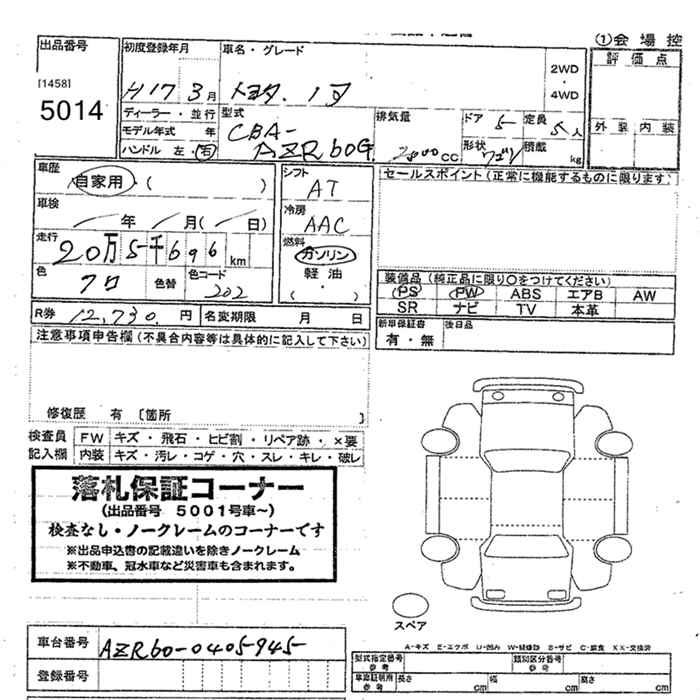 ①会場控
出品番号
[1458]
5014
初度登録年月
H17 3月
車名・グレード
トヨタ. ノア
2WD
・
4WD
評価点
外装 内装
ディーラー・並行
モデル年式 年
ハンドル 左・右
型式
CBA-
AZR60G
排気量
2000cc
ドア 5
定員 5人
形状 ワゴン
積載 kg
車歴
自家用・( )
車検
年 月( 日)
走行
20万5千696km
色
クロ
色替
色コード
202
シフト
AT
冷房
AAC
燃料
ガソリン
軽油
( ・ )
セールスポイント(正常に機能するものに限ります)
装備品(純正品に限り○をつけてください)
PS PW ABS エアB AW
SR ナビ TV 本革
新車保証書
有・無
後日品
R券 12,730.円
名変期限 月 日
注意事項申告欄(不具合内容等は具体的に記入して下さい)
修復歴 有 〔箇所 〕
検査員
記入欄
FW キズ・飛石・ヒビ割・リペア跡・×要
内装 キズ・汚レ・コゲ・穴・スレ・キレ・破レ
落札保証コーナー
(出品番号 5001号車~)
検査なし・ノークレームのコーナーです
※出品申込書の記載違いを除きノークレーム
※不動車、冠水車など災害車も含まれます。
スペア
A-キズ E-エクボ U-凹み W-補修跡 S-サビ C-腐食 XX-交換済
車台番号 AZR60-0405945
登録番号
型式指定番号
参考
類別区分番号
参考
車庫証明用
参考
長さ cm 幅 cm 高さ cm